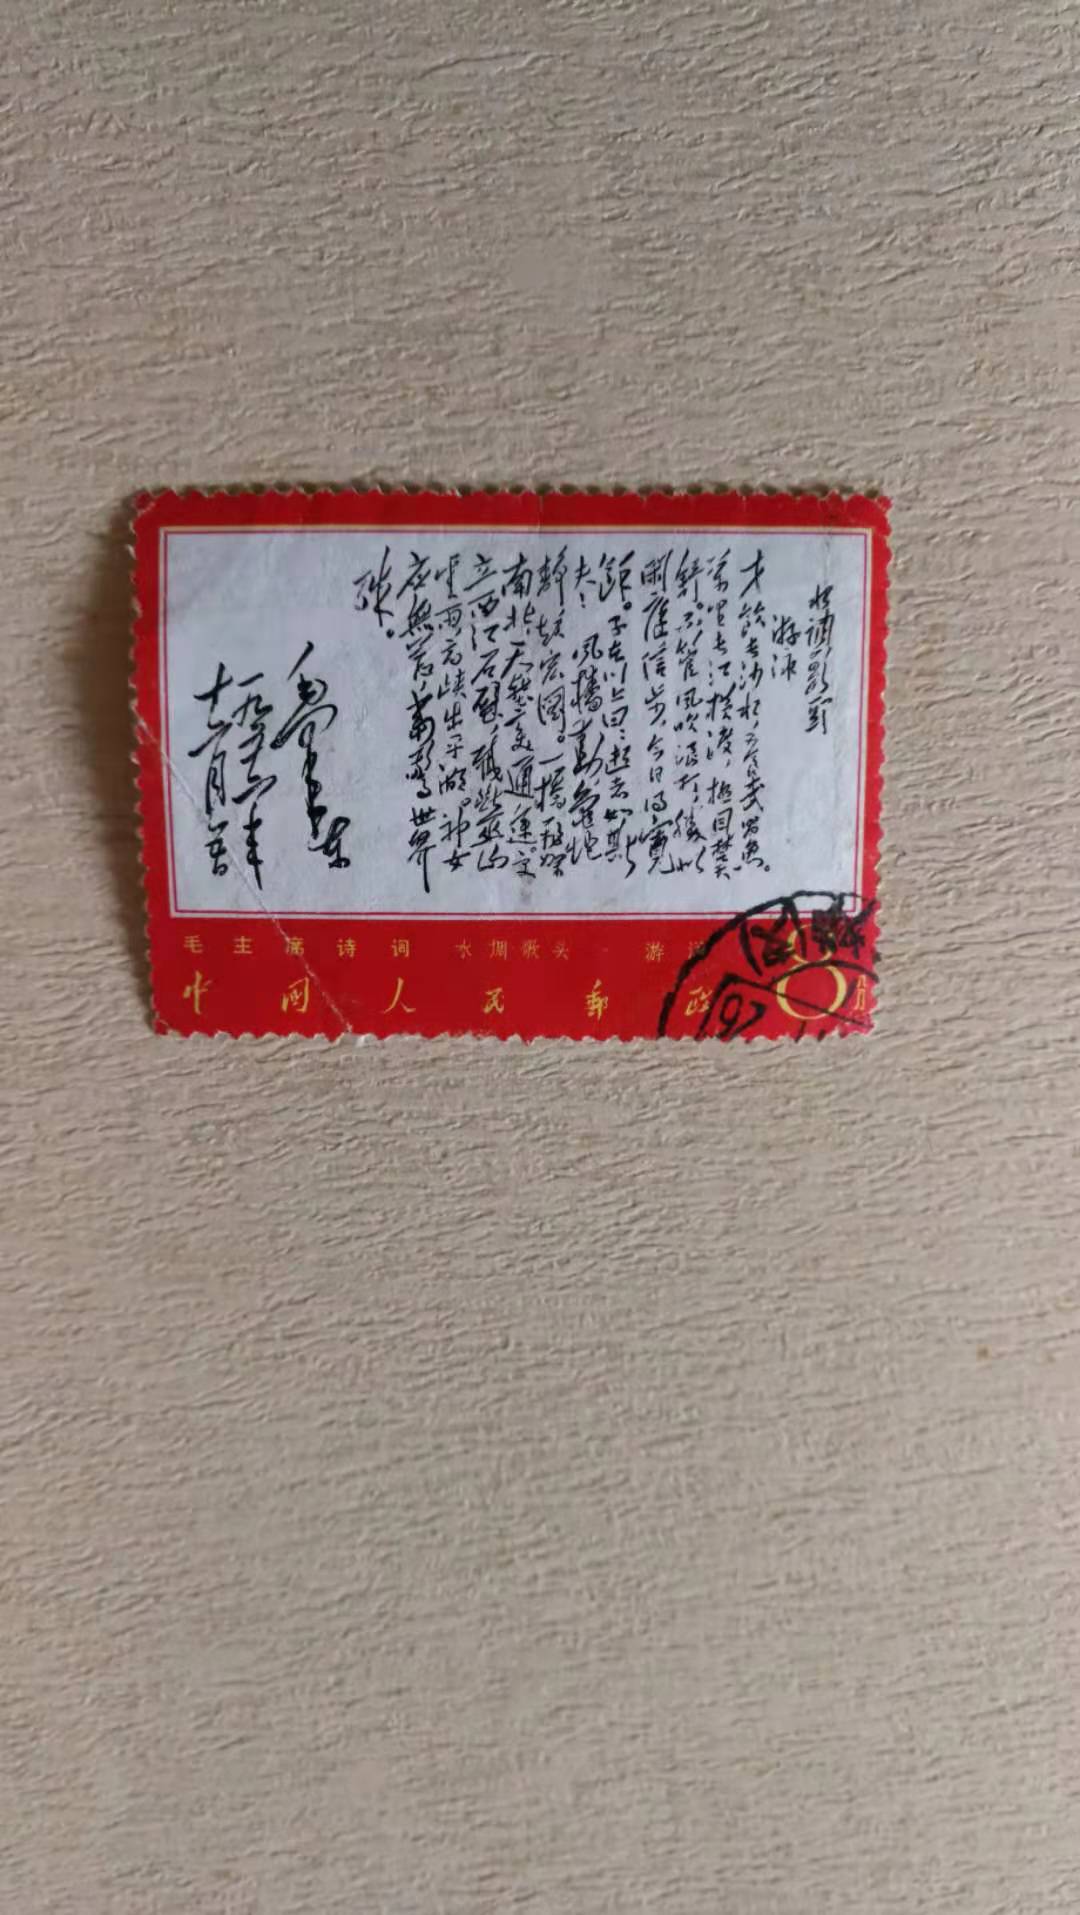 水调歌头
游泳
才饮长沙水，又食武昌鱼。
万里长江横渡，极目楚天
舒。不管风吹浪打，胜似
闲庭信步，今日得宽
馀。子在川上曰：逝者如斯
夫！风樯动，龟蛇
静，起宏图。一桥飞架
南北，天堑变通途。更
立西江石壁，截断巫山
云雨，高峡出平湖。神女
应无恙，当惊世界
殊。
毛泽东
一九五六年
十二月
毛主席诗词 水调歌头·游泳
中國人民郵政 8分